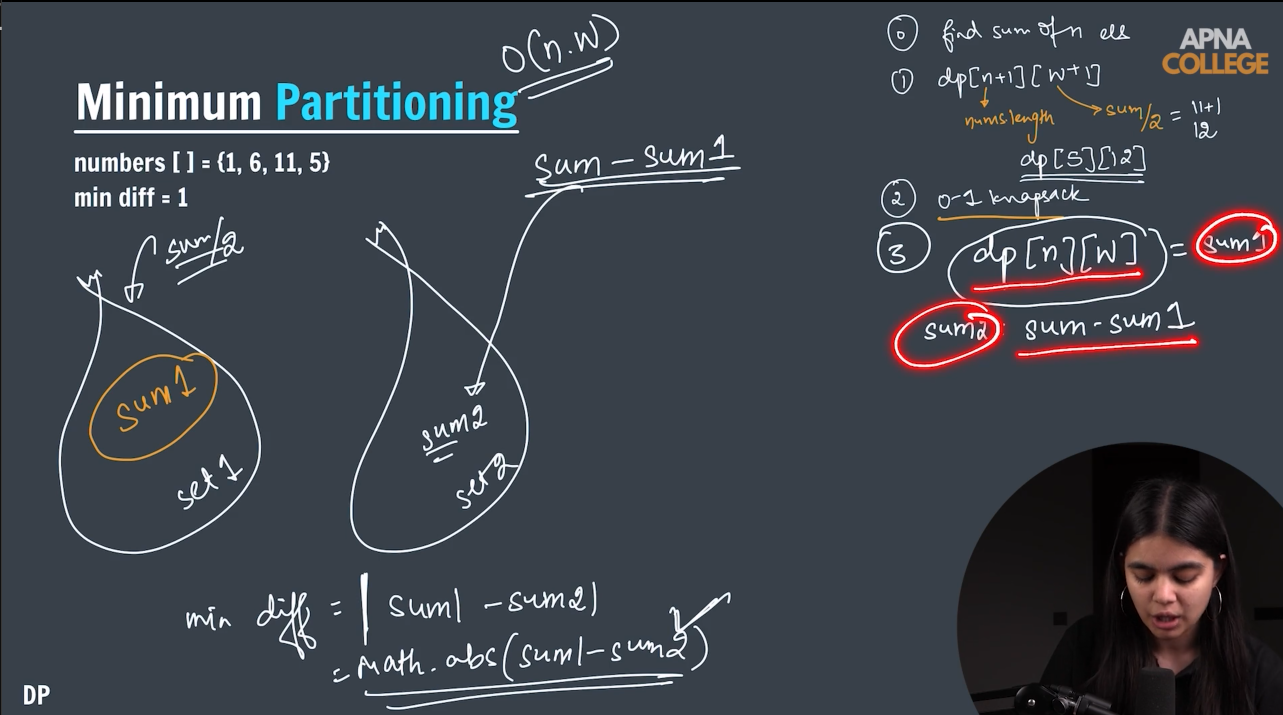 O(n.W)
Minimum Partitioning
numbers [ ] = {1, 6, 11, 5}
min diff = 1
sum - sum1
sum/2
sum1
set1
sum2
set2
min diff = | sum1 - sum2|
= Math.abs(sum1-sum2)
DP
⓪ find sum of n els
① dp[n+1][W+1]
nums length
sum/2 = 11+1
12
dp[5][12]
② 0-1 knapsack
③ dp[n][W] = sum1
sum2 sum-sum1
APNA
COLLEGE